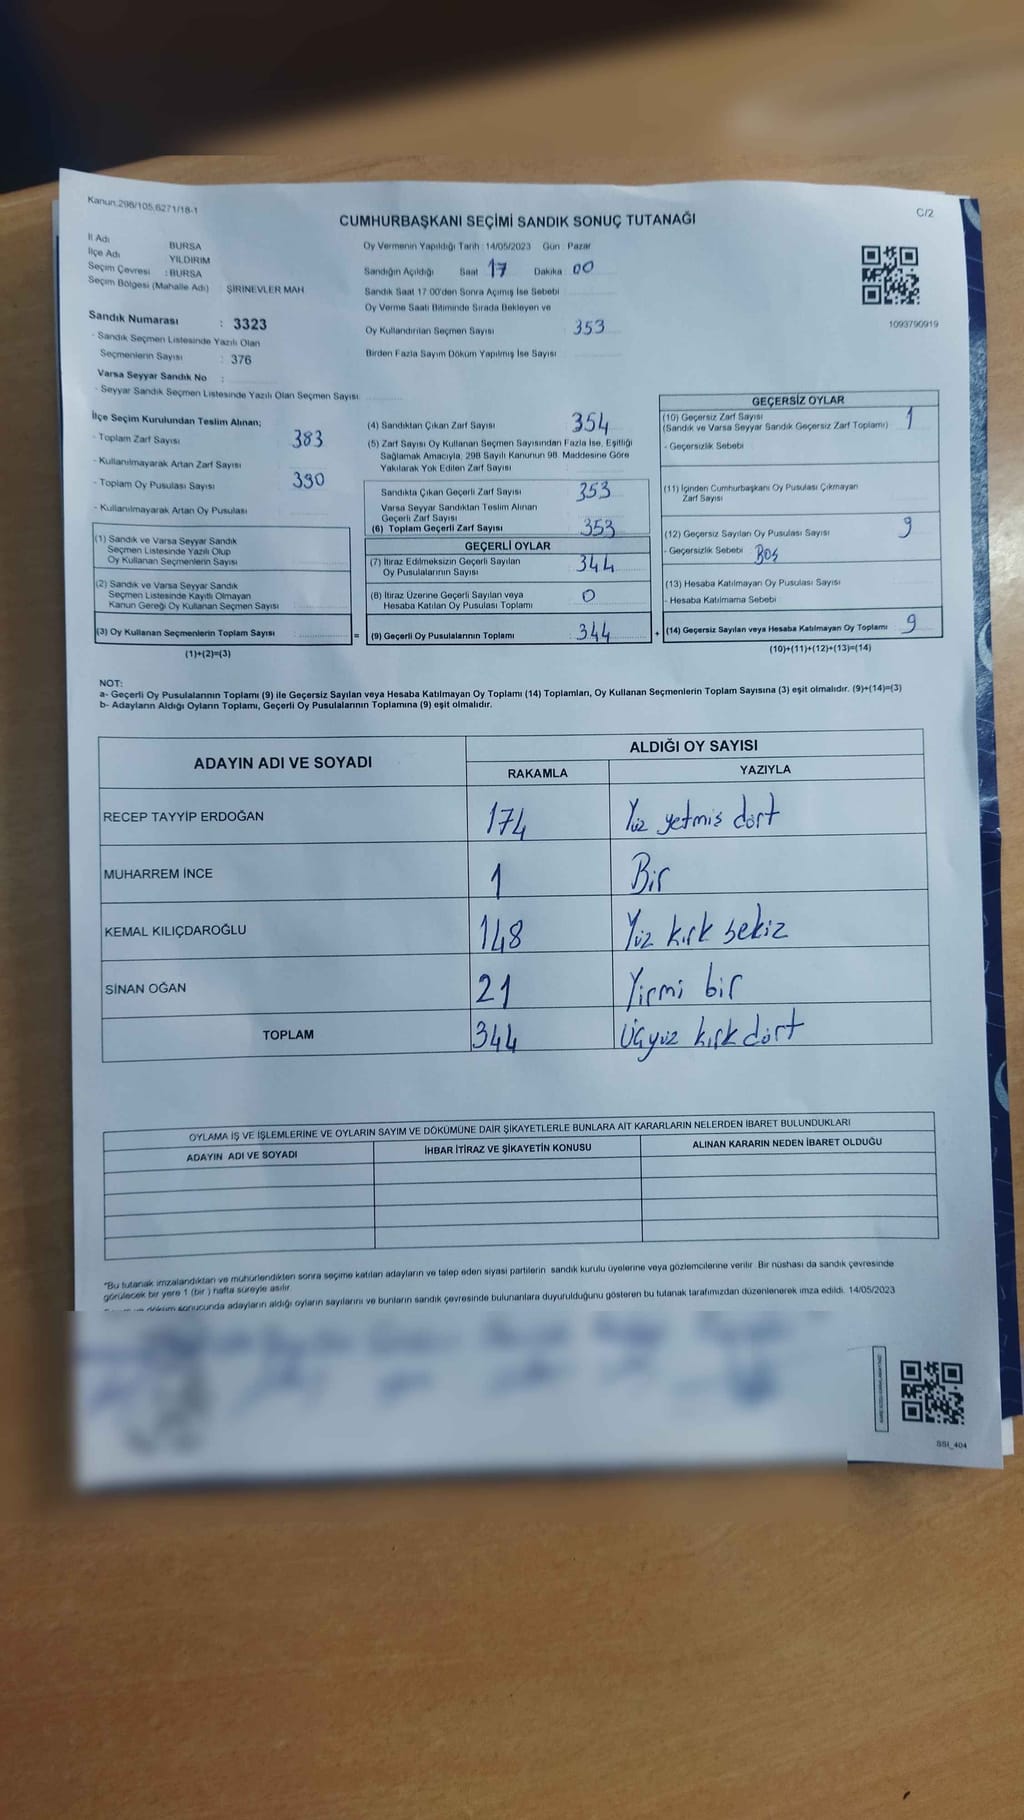 Kanun:298/105,6271/18-1
C/2
CUMHURBAŞKANI SEÇİMİ SANDIK SONUÇ TUTANAĞI
İl Adı BURSA
İlçe Adı YILDIRIM
Seçim Çevresi : BURSA
Seçim Bölgesi (Mahalle Adı) ŞİRİNEVLER MAH
Sandık Numarası : 3323
- Sandık Seçmen Listesinde Yazılı Olan
Seçmenlerin Sayısı : 376
Varsa Seyyar Sandık No :
- Seyyar Sandık Seçmen Listesinde Yazılı Olan Seçmen Sayısı
Oy Vermenin Yapıldığı Tarih : 14/05/2023 Gün : Pazar
Sandığın Açıldığı Saat 17 Dakika 00
Sandık Saat 17:00'den Sonra Açımış İse Sebebi
Oy Verme Saati Bitiminde Sırada Bekleyen ve
Oy Kullandırılan Seçmen Sayısı 353
Birden Fazla Sayım Döküm Yapılmış İse Sayısı
1093790919
İlçe Seçim Kurulundan Teslim Alınan;
- Toplam Zarf Sayısı 383
- Kullanılmayarak Artan Zarf Sayısı
- Toplam Oy Pusulası Sayısı 390
- Kullanılmayarak Artan Oy Pusulası
(1) Sandık ve Varsa Seyyar Sandık
Seçmen Listesinde Yazılı Olup
Oy Kullanan Seçmenlerin Sayısı
(2) Sandık ve Varsa Seyyar Sandık
Seçmen Listesinde Kayıtlı Olmayan
Kanun Gereği Oy Kullanan Seçmen Sayısı
(3) Oy Kullanan Seçmenlerin Toplam Sayısı : =
(1)+(2)=(3)
(4) Sandıktan Çıkan Zarf Sayısı 354
(5) Zarf Sayısı Oy Kullanan Seçmen Sayısından Fazla İse, Eşitliği
Sağlamak Amacıyla, 298 Sayılı Kanunun 98. Maddesine Göre
Yakılarak Yok Edilen Zarf Sayısı
Sandıkta Çıkan Geçerli Zarf Sayısı 353
Varsa Seyyar Sandıktan Teslim Alınan
Geçerli Zarf Sayısı
(6) Toplam Geçerli Zarf Sayısı 353
GEÇERLİ OYLAR
(7) İtiraz Edilmeksizin Geçerli Sayılan
Oy Pusulalarının Sayısı : 344
(8) İtiraz Üzerine Geçerli Sayılan veya
Hesaba Katılan Oy Pusulası Toplamı : 0
(9) Geçerli Oy Pusulalarının Toplamı : 344 +
GEÇERSİZ OYLAR
(10) Geçersiz Zarf Sayısı
(Sandık ve Varsa Seyyar Sandık Geçersiz Zarf Toplamı) 1
- Geçersizlik Sebebi
(11) İçinden Cumhurbaşkanı Oy Pusulası Çıkmayan
Zarf Sayısı
(12) Geçersiz Sayılan Oy Pusulası Sayısı 9
- Geçersizlik Sebebi Boş
(13) Hesaba Katılmayan Oy Pusulası Sayısı
- Hesaba Katılmama Sebebi
(14) Geçersiz Sayılan veya Hesaba Katılmayan Oy Toplamı 9
(10)+(11)+(12)+(13)=(14)
NOT:
a- Geçerli Oy Pusulalarının Toplamı (9) ile Geçersiz Sayılan veya Hesaba Katılmayan Oy Toplamı (14) Toplamları, Oy Kullanan Seçmenlerin Toplam Sayısına (3) eşit olmalıdır. (9)+(14)=(3)
b- Adayların Aldığı Oyların Toplamı, Geçerli Oy Pusulalarının Toplamına (9) eşit olmalıdır.
ADAYIN ADI VE SOYADI ALDIĞI OY SAYISI
RAKAMLA YAZIYLA
RECEP TAYYİP ERDOĞAN 174 Yüz yetmiş dört
MUHARREM İNCE 1 Bir
KEMAL KILIÇDAROĞLU 148 Yüz kırk sekiz
SİNAN OĞAN 21 Yirmi bir
TOPLAM 344 Üçyüz kırk dört
OYLAMA İŞ VE İŞLEMLERİNE VE OYLARIN SAYIM VE DÖKÜMÜNE DAİR ŞİKAYETLERLE BUNLARA AİT KARARLARIN NELERDEN İBARET BULUNDUKLARI
ADAYIN ADI VE SOYADI İHBAR İTİRAZ VE ŞİKAYETİN KONUSU ALINAN KARARIN NEDEN İBARET OLDUĞU
*Bu tutanak imzalandıktan ve mühürlendikten sonra seçime katılan adayların ve talep eden siyasi partilerin sandık kurulu üyelerine veya gözlemcilerine verilir. Bir nüshası da sandık çevresinde
görülecek bir yere 1 (bir ) hafta süreyle asılır.
döküm sonucunda adayların aldığı oyların sayılarını ve bunların sandık çevresinde bulunanlara duyurulduğunu gösteren bu tutanak tarafımızdan düzenlenerek imza edildi. 14/05/2023
SSI_404